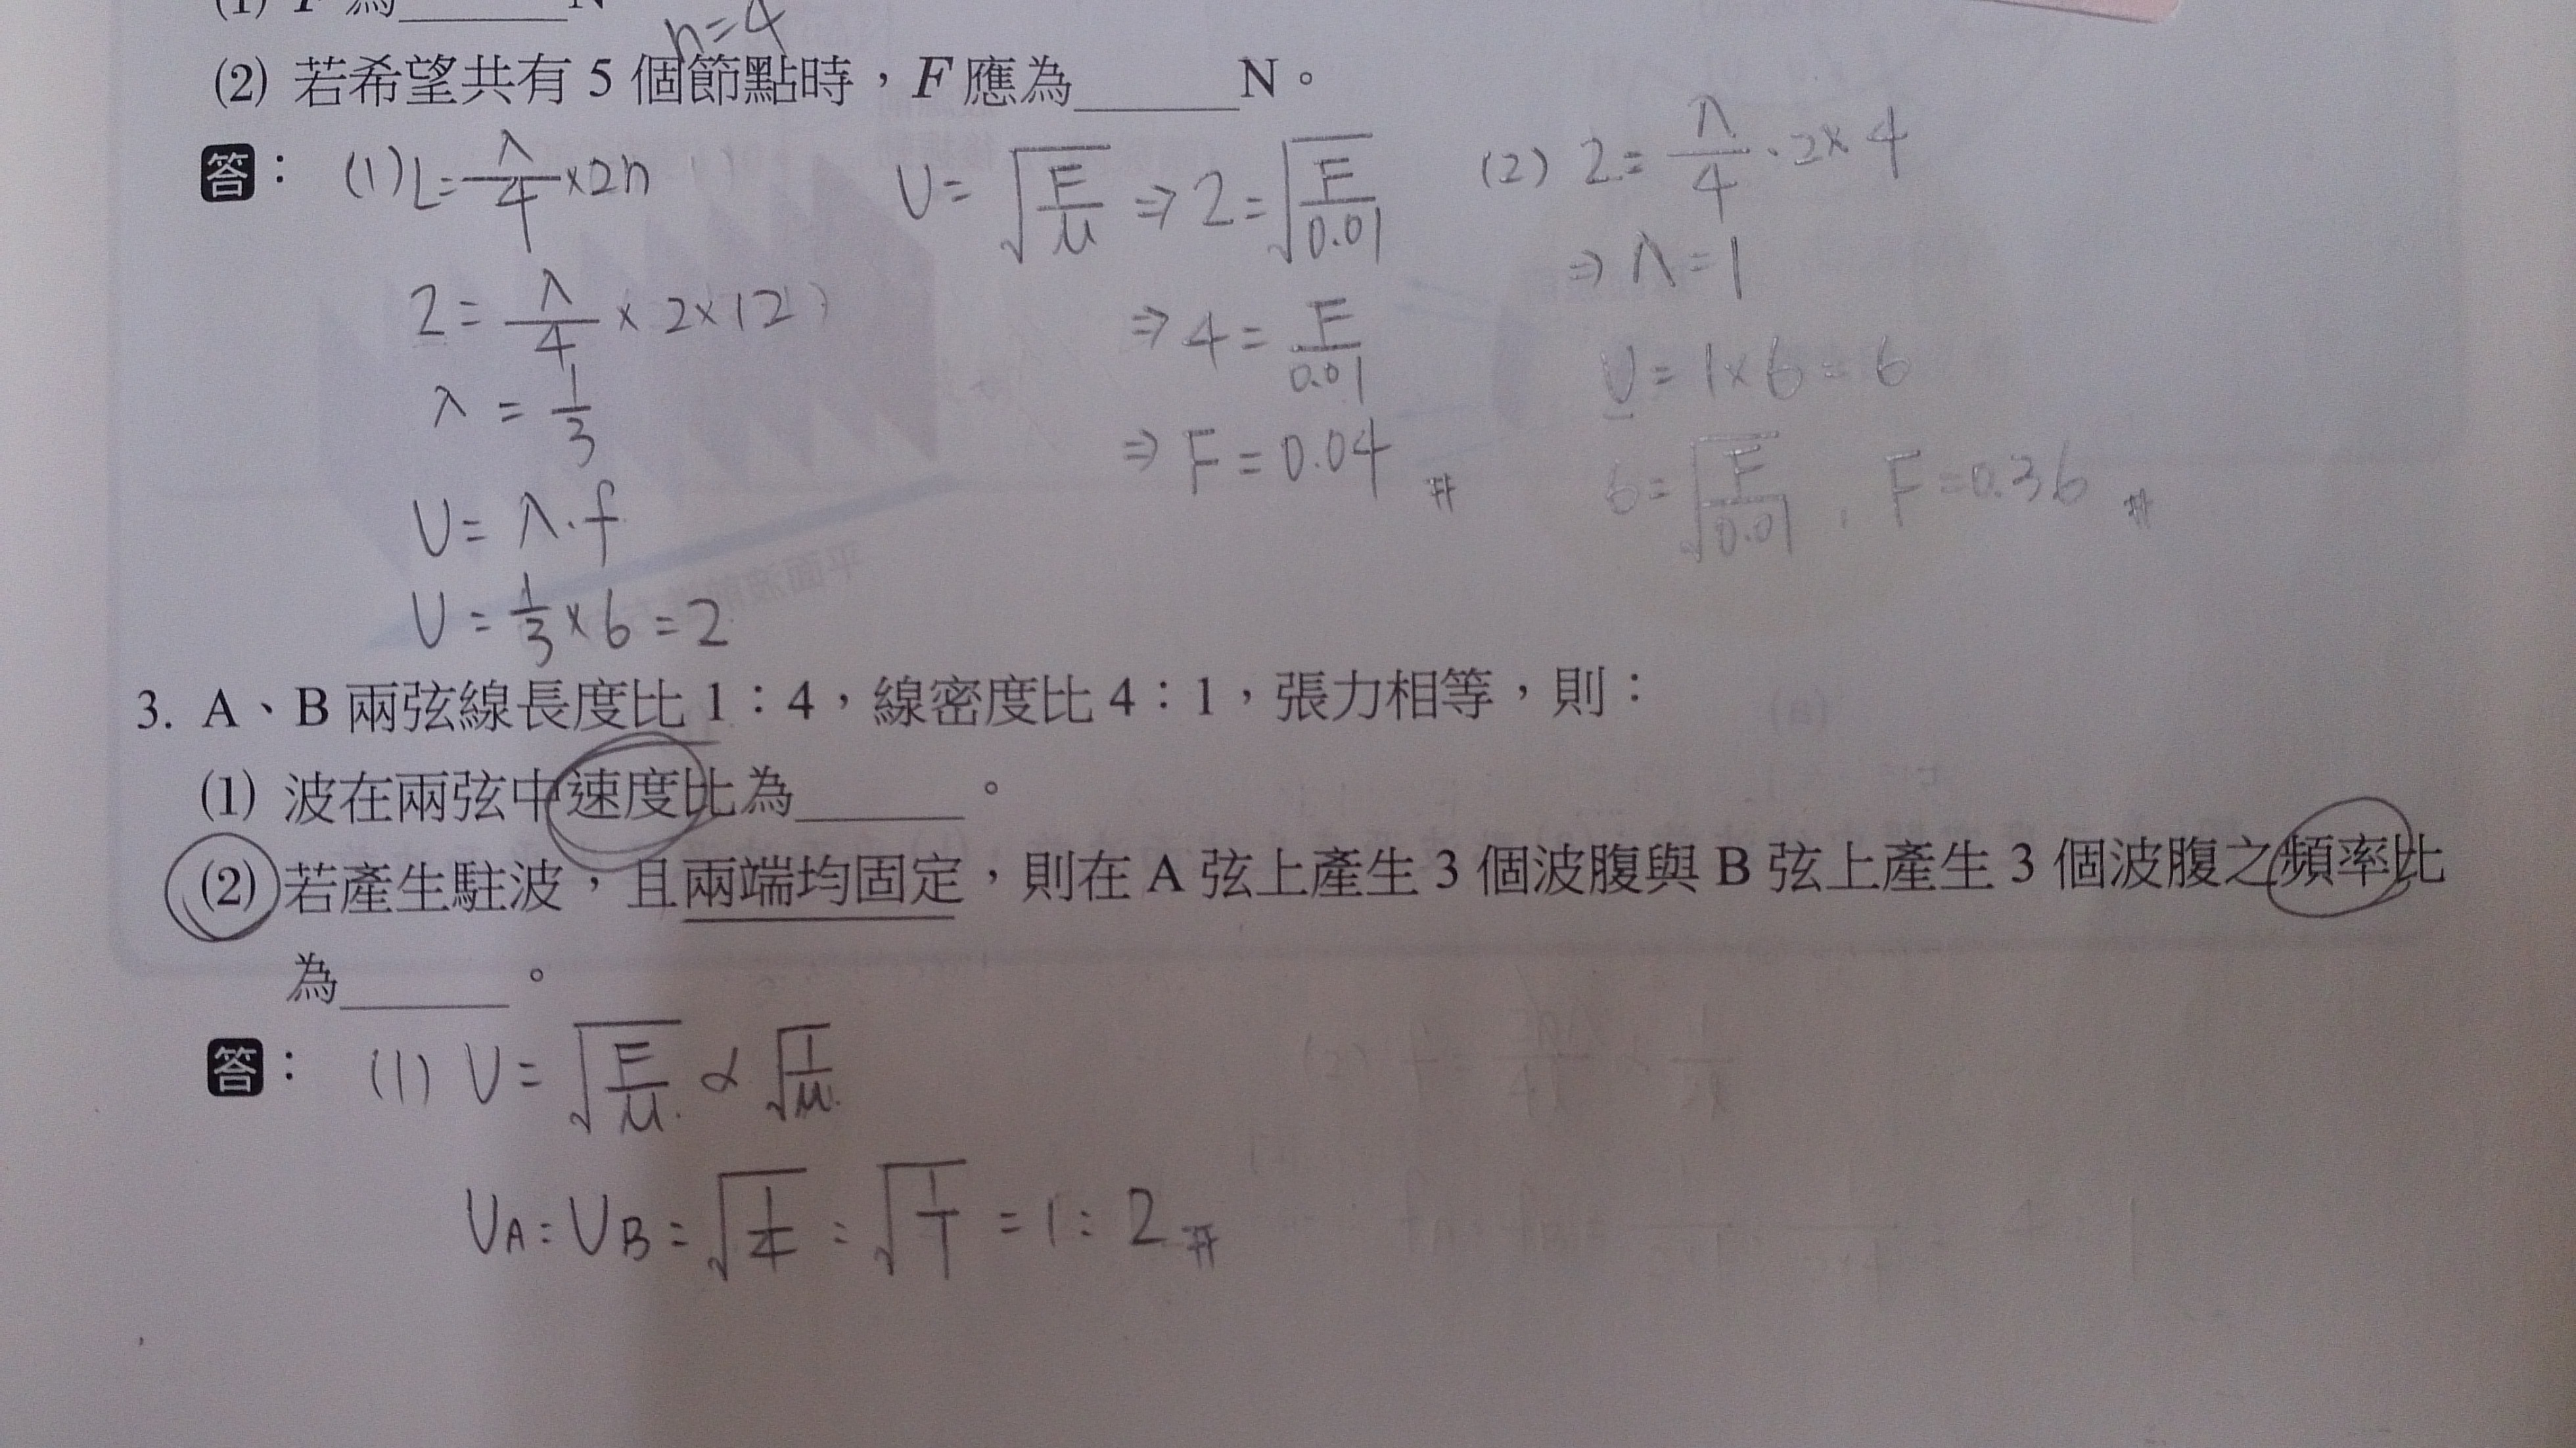 (1) F 為______N
n=4
(2) 若希望共有 5 個節點時，F 應為______N。
答： (1) L=λ/4×2n
2=λ/4×2×12
λ=1/3
υ=λ·f
υ=1/3×6=2
υ=√(F/μ) ⇒ 2=√(F/0.01)
⇒ 4=F/0.01
⇒ F=0.04 #
(2) 2=λ/4·2×4
⇒ λ=1
υ=1×6=6
6=√(F/0.01), F=0.36 #
3. A、B 兩弦線長度比 1：4，線密度比 4：1，張力相等，則：
(1) 波在兩弦中速度比為______。
(2) 若產生駐波，且兩端均固定，則在 A 弦上產生 3 個波腹與 B 弦上產生 3 個波腹之頻率比
為______。
答： (1) υ=√(F/μ) ∝ √(1/μ)
υA:υB=√(1/4):√(1/1)=1:2 #